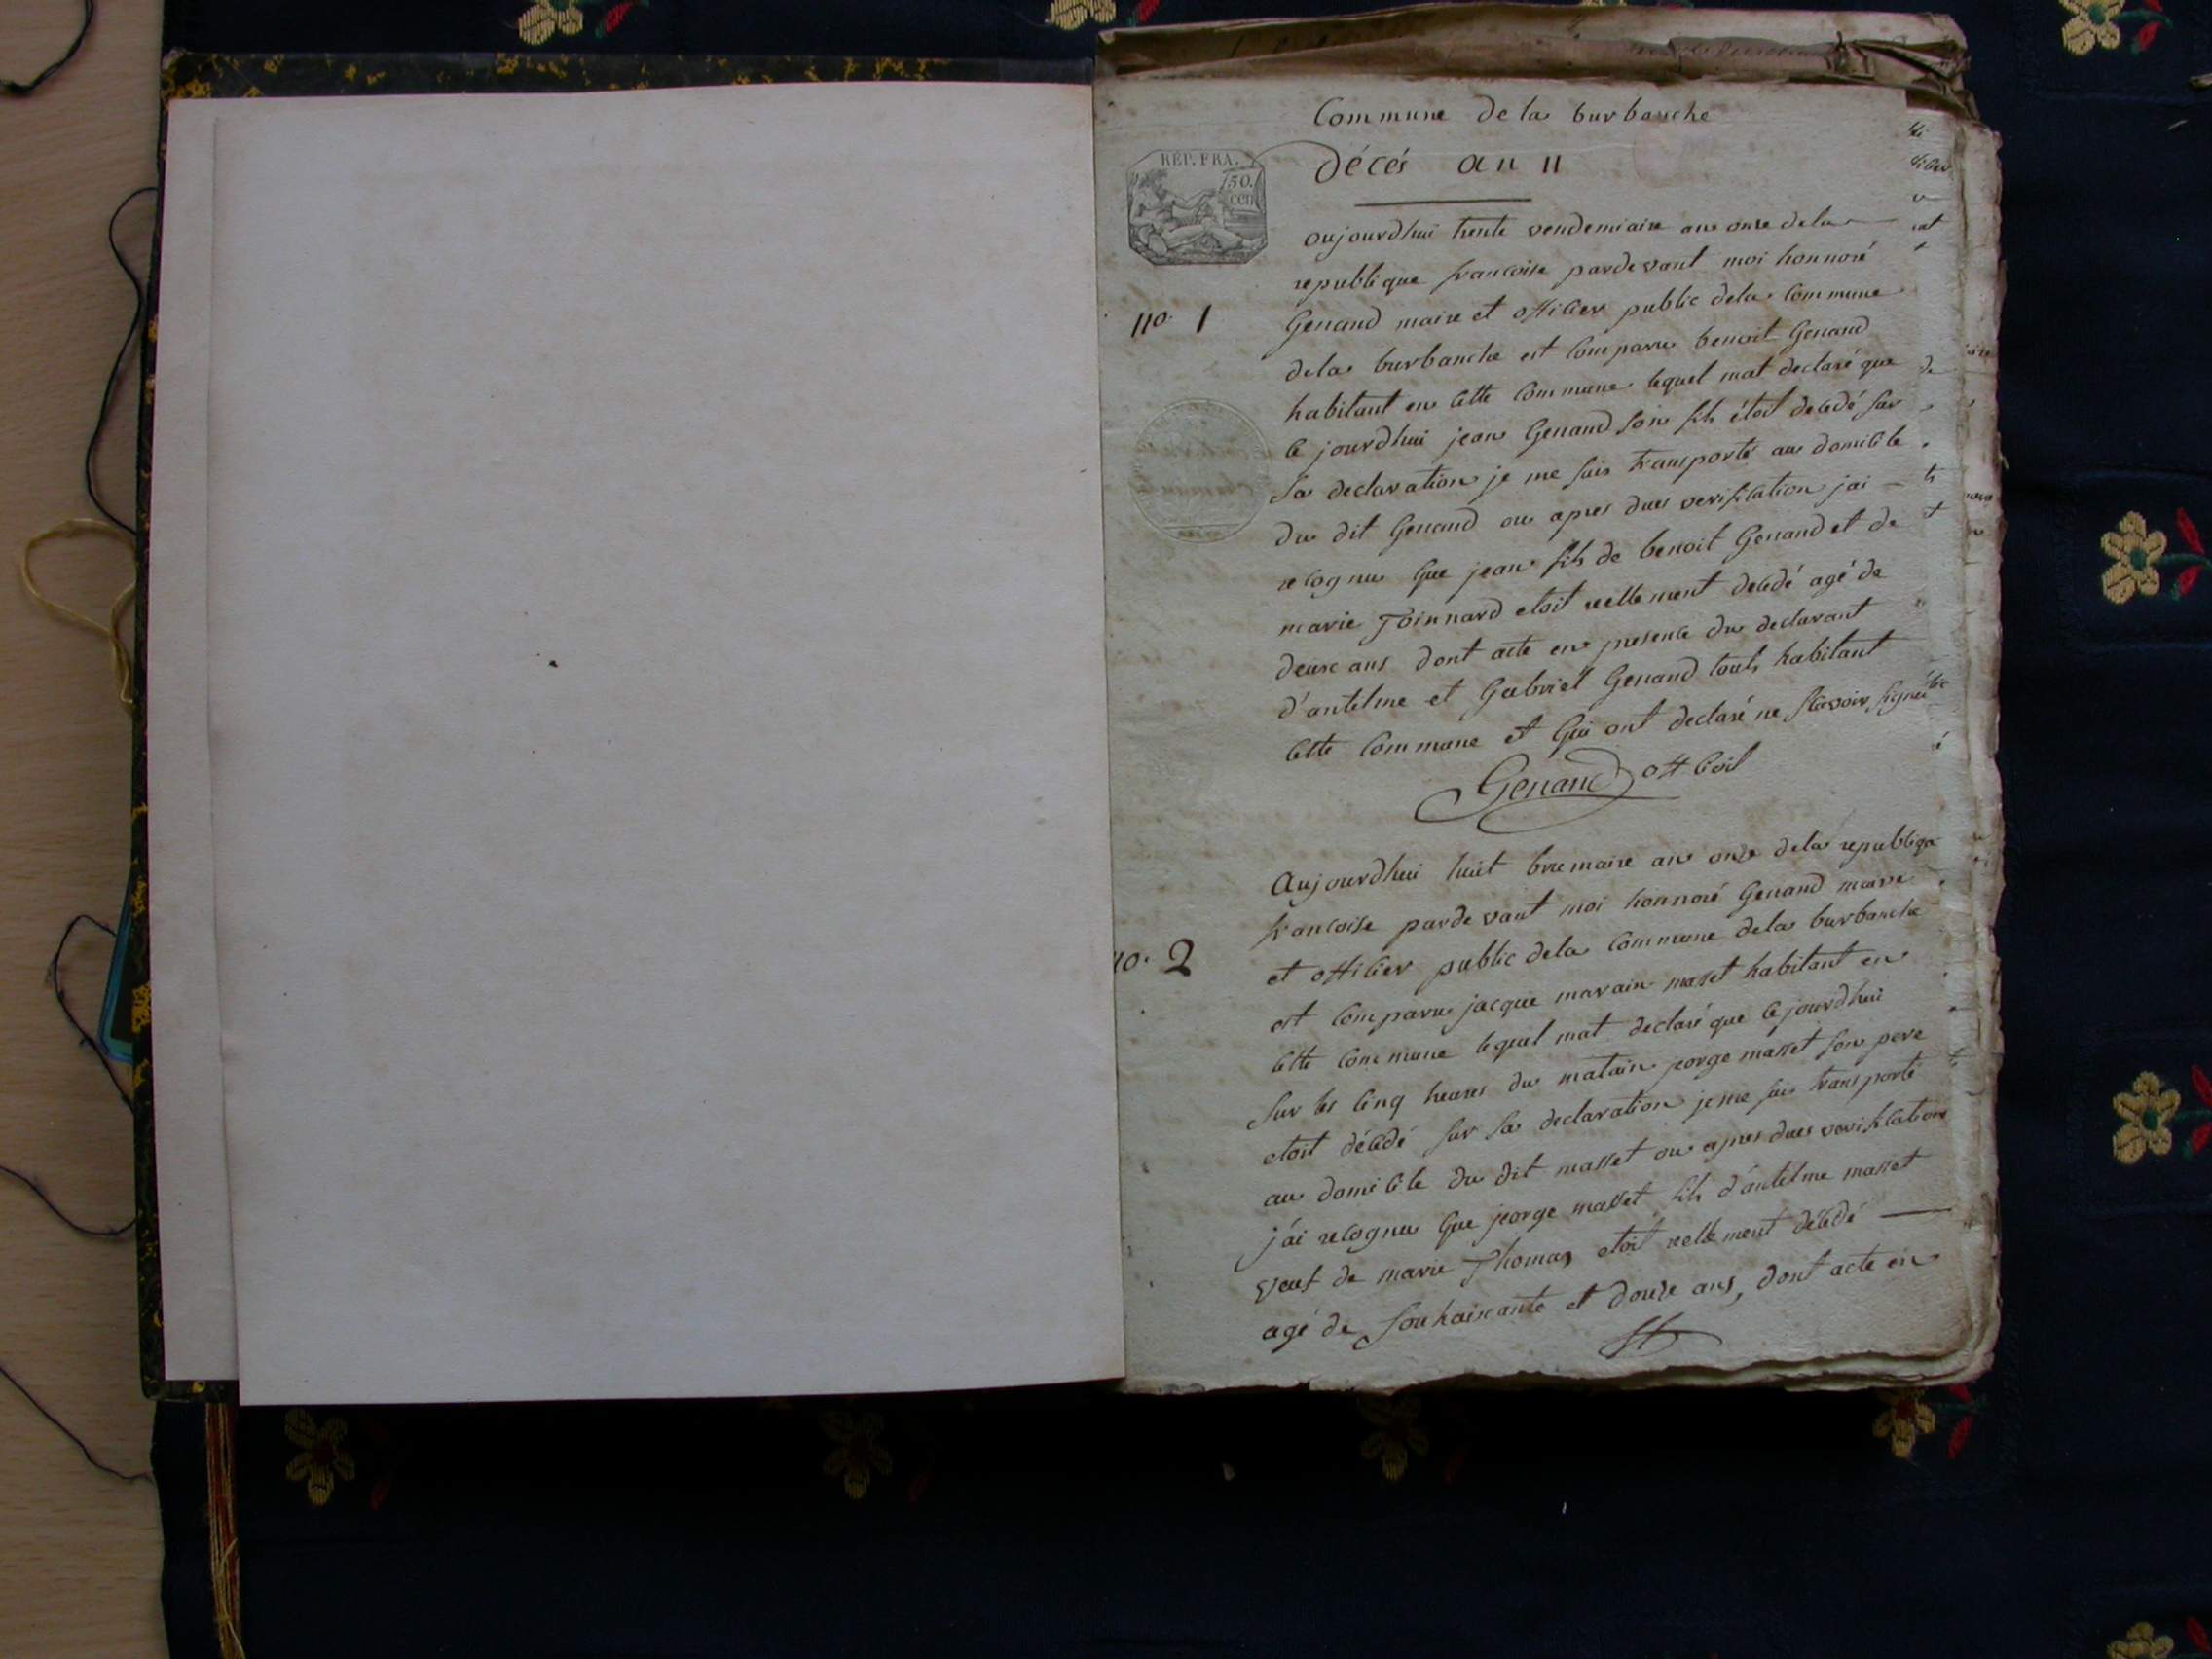 Commune de la burbanche
décés an 11
RÉP. FRA.
50.
cen
no. 1
oujourdhui trente vendemiaire an onze dela
republique francoise pardevant moi honnoré
Genand maire et officier public dela commune
dela burbanche est comparu benoit Genand
habitant en cette commune lequel mat declaré que
ce jourdhui jean Genand son fils étoit decedé sur
sa declaration je me suis transporté au domicile
du dit Genand ou apres dues verification jai
recognu que jean fils de benoit Genand et de
marie Toinnard etoit reellement decedé agé de
deux ans dont acte en presence du declarant
d'antelme et Gabriel Genand touts habitant
cette commune et qui ont declaré ne scavoir signé
Genand off civil
Aujourdhui huit brumaire an onze dela republiqu
francoise pardevant moi honnoré Genand maire
no. 2
et officier public dela commune dela burbanche
est comparu jacque marain masset habitant en
cette commune lequel mat declaré que cejourdhui
sur les cinq heures du matain jeorge masset son pere
etoit décédé sur sa declaration jeme suis transporté
au domicile du dit masset ou apres dues verification
j'ai recognu que jeorge masset fils d'antelme masset
veuf de marie Thomas etoit reellement décédé
agé de souhaixante et douze ans, dont acte en